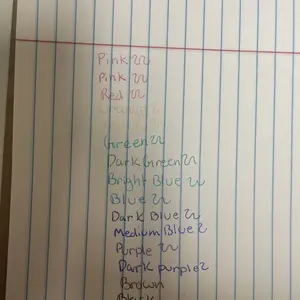 Pink
Pink
Red
Green
Dark Green
Bright Blue
Blue
Dark Blue
Medium Blue
Purple
Dark purple
Brown
Black